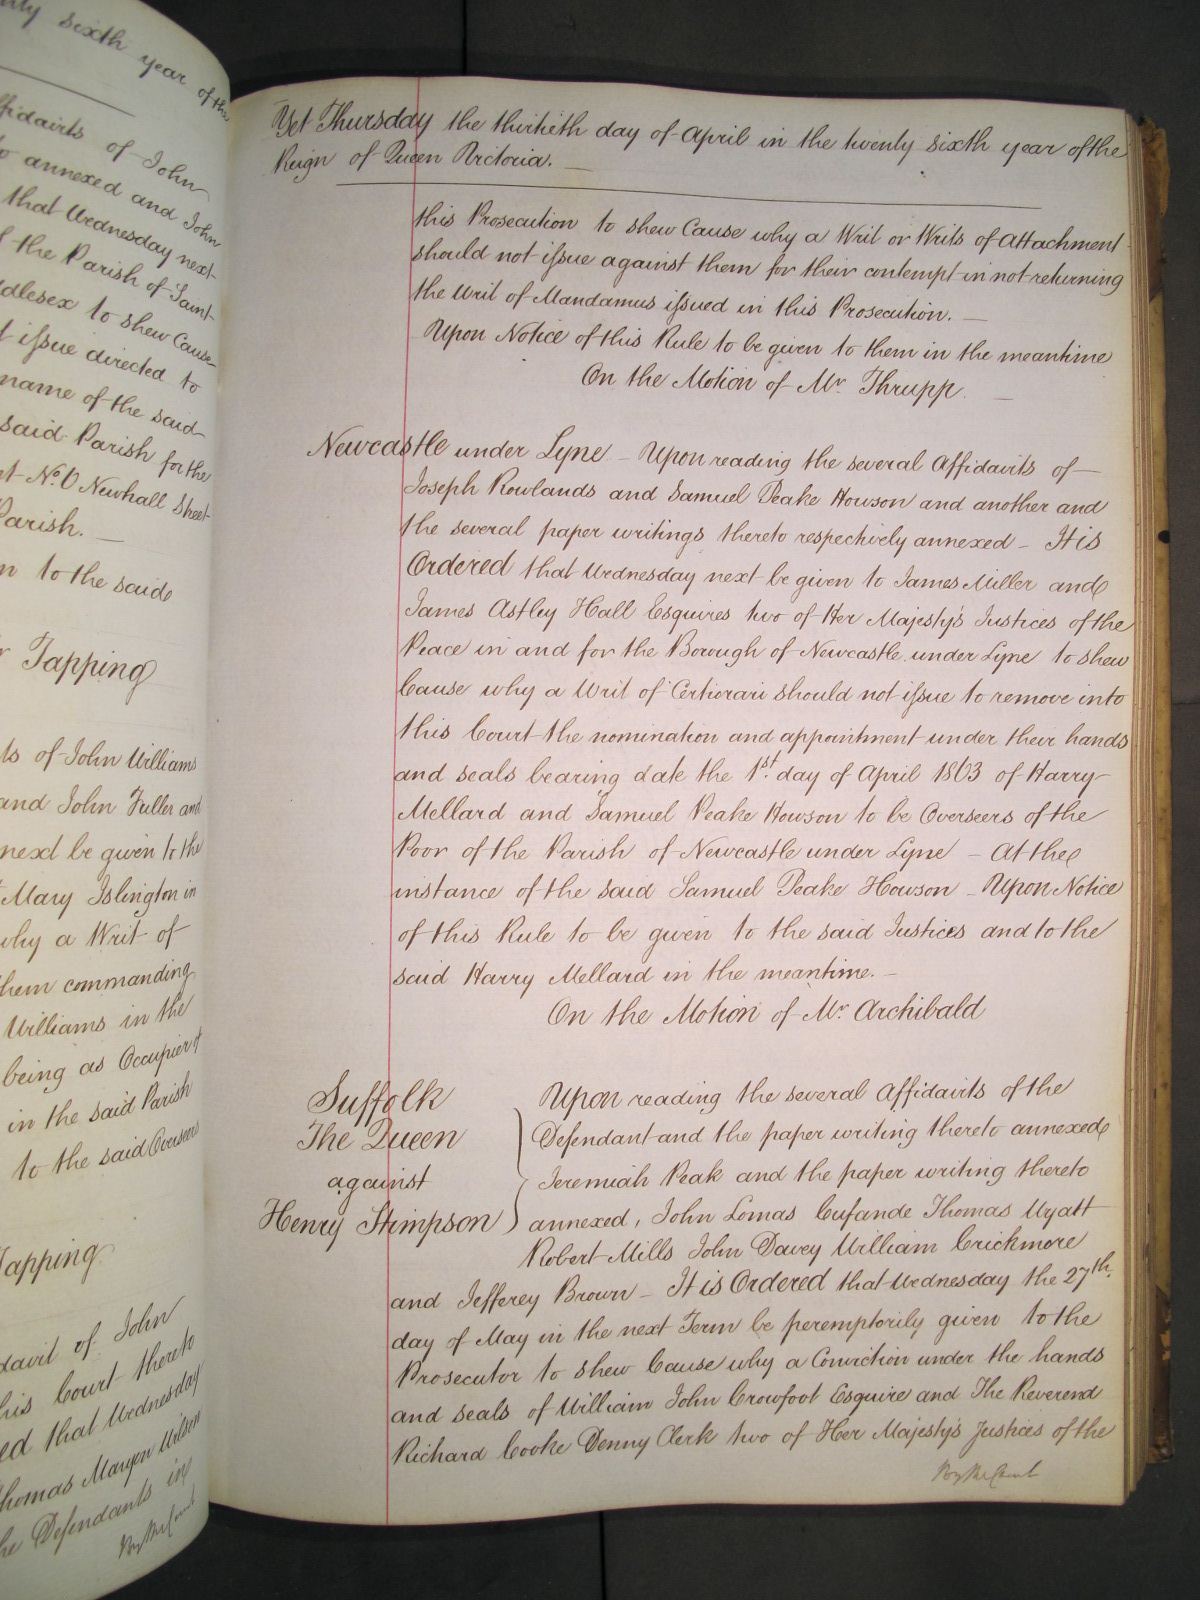 nty sixth year of the
ffidavits of John
to annexed and John
that Wednesday next
f the Parish of Saint
dlesex to shew Cause
t issue directed to
name of the said
said Parish for the
Newhall Street
Parish.
n to the said
Tapping
ts of John Williams
and John Fuller and
next be given to the
Mary Islington in
why a Writ of
them commanding
Williams in the
being as Occupier of
in the said Parish
to the said Overseers
Tapping
davit of John
his Court thereto
ed that Wednesday
Thomas Wilson
he Defendants in
By the Court
Yet Thursday the thirtieth day of April in the twenty sixth year of the
Reign of Queen Victoria.
this Prosecution to shew Cause why a Writ or Writs of Attachment
should not issue against them for their contempt in not returning
the Writ of Mandamus issued in this Prosecution.
Upon Notice of this Rule to be given to them in the meantime
On the Motion of Mr. Thrupp.
Newcastle under Lyne – Upon reading the several Affidavits of
Joseph Rowlands and Samuel Peake Howson and another and
the several paper writings thereto respectively annexed – It is
Ordered that Wednesday next be given to James Miller and
James Astley Hall Esquires two of Her Majesty's Justices of the
Peace in and for the Borough of Newcastle under Lyne to shew
Cause why a Writ of Certiorari should not issue to remove into
this Court the nomination and appointment under their hands
and seals bearing date the 1st. day of April 1863 of Harry
Mellard and Samuel Peake Howson to be Overseers of the
Poor of the Parish of Newcastle under Lyne – At the
instance of the said Samuel Peake Howson – Upon Notice
of this Rule to be given to the said Justices and to the
said Harry Mellard in the meantime. –
On the Motion of Mr. Archibald
Suffolk
The Queen
against
Henry Stimpson
Upon reading the several Affidavits of the
Defendant and the paper writing thereto annexed
Jeremiah Peak and the paper writing thereto
annexed, John Lomas Cufande Thomas Wyatt
Robert Mills John Davey William Crickmore
and Jefferey Brown – It is Ordered that Wednesday the 27th.
day of May in the next Term be peremptorily given to the
Prosecutor to shew Cause why a Conviction under the hands
and seals of William John Crowfoot Esquire and The Reverend
Richard Cooke Denny Clerk two of Her Majesty's Justices of the
By the Court